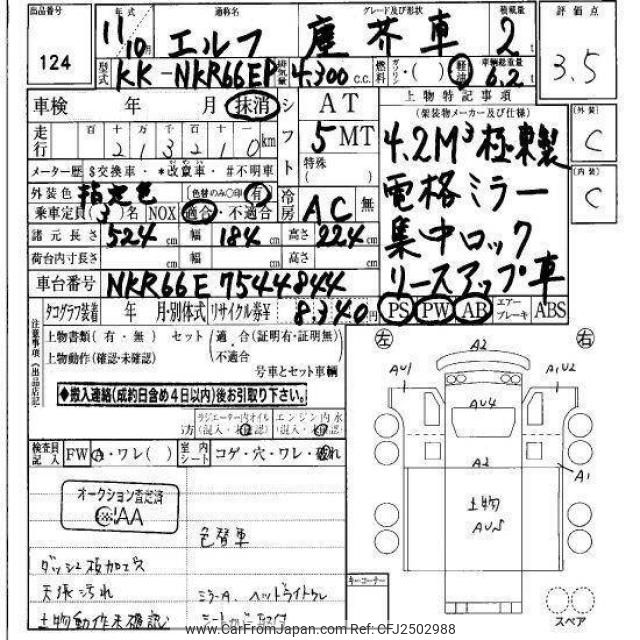 出品番号
124
年 月
11/10
通称名
エルフ
グレード及び形状
塵芥車
積載量
2 t
評価点
3.5
型式
KK-NKR66EP
排気量
4,300 c.c.
燃料
ガソリン・( )
軽油
車輌総重量
6.2 t
車検 年 月 抹消
シフト
AT
5 MT
特殊
( )
上物特記事項
(架装物メーカー及び仕様)
4.2M³ 極東製
電格ミラー
集中ロック
リースアップ車
(外装)
C
(内装)
C
走行
百 十 万 千 百 十
2 1 3 2 1 0 km
メーター歴 $交換車・*改ざん車・#不明車
外装色 指定色
(色替のみ〇印) 有
冷房 AC 無
乗車定員(3)名 NOX 適合・不適合
諸元長さ 524 cm 幅 184 cm 高さ 224 cm
荷台内寸長さ cm 幅 cm 高さ cm
車台番号 NKR66E 7544844
PS PW AB エアーブレーキ ABS
タコグラフ装着 年 月・別体式 リサイクル券¥ 8,340円
注意事項(出品店記)
上物書類(有・無) セット 適合(証明有・証明無)
上物動作(確認・未確認) 不適合
号車とセット車輌
◆搬入連絡(成約日含め4日以内)後お引取り下さい。
ラジエーター内オイル エンジン内水
(混入・未確認) (混入・未確認)
検査員記入
FW A・ワレ( )
室内シート
コゲ・穴・ワレ・破れ
オークション査定済
CIAA
色替車
ダッシュ板加工穴
天張汚れ
ミラーA、ヘッドライトワレ
上物動作未確認
左
右
A2
AU1
A1U2
AU4
A2
A1
上物
AU5
キーコーナー
スペア
www.CarFromJapan.com Ref: CFJ2502988